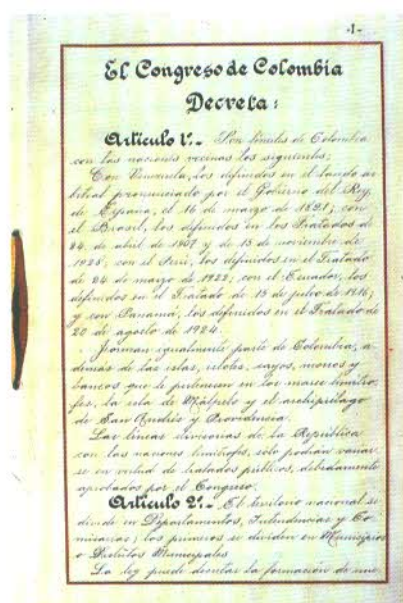 -1-
El Congreso de Colombia
Decreta:
Artículo 1º.- Son límites de Colombia
con las naciones vecinas los siguientes:
Con Venezuela, los definidos en el laudo ar
bitral pronunciado por el Gobierno del Rey
de España, el 16 de marzo de 1891; con
el Brasil, los definidos en los Tratados de
24 de abril de 1907 y de 15 de noviembre de
1928; con el Perú, los definidos en el Tratado
de 24 de marzo de 1922; con el Ecuador, los
definidos en el Tratado de 15 de julio de 1916;
y con Panamá, los definidos en el Tratado de
20 de agosto de 1924.
Forman igualmente parte de Colombia, a-
demás de las islas, islotes, cayos, morros y
bancos que le pertenecen en los mares limítro-
fes, la isla de Malpelo y el archipiélago
de San Andrés y Providencia.
Las líneas divisorias de la República
con las naciones limítrofes, sólo podrán variar
se en virtud de tratados públicos, debidamente
aprobados por el Congreso.
Artículo 2º.- El territorio nacional se
divide en Departamentos, Intendencias y Co
misarías; los primeros se dividen en Municipios
o Distritos Municipales
La ley puede decretar la formación de nue